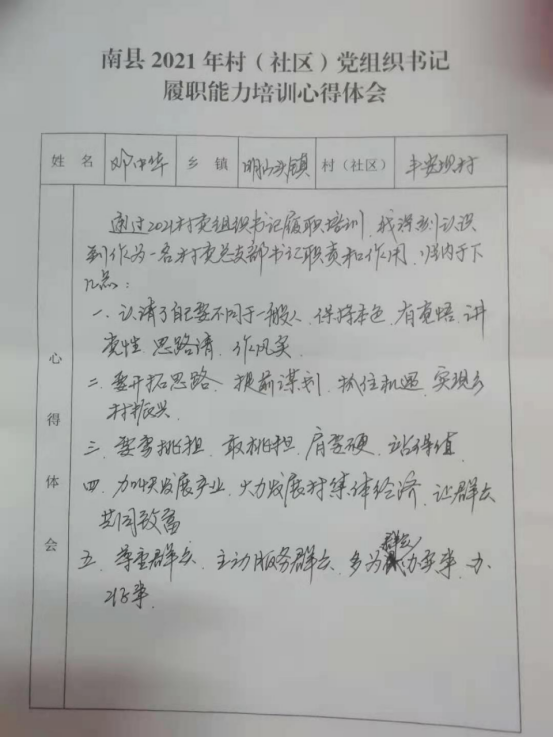 南县2021年村（社区）党组织书记
履职能力培训心得体会
姓 名 邓中华 乡 镇 明山头镇 村（社区） 丰安垸村
心得体会
通过2021村党组织书记履职培训，我深刻认识
到作为一名村党总支部书记职责和作用，归纳于下
几点：
一、认清了自己要不同于一般人、保持本色、有觉悟、讲
党性 思路清、作风实
二、要开拓思路、提前谋划、抓住机遇、实现乡
村振兴
三、要勇挑担、敢挑担、肩要硬、站得直
四、加快发展产业、大力发展村集体经济、让群众
共同致富
五、尊重群众、主动服务群众、多为群众办实事、办
好事